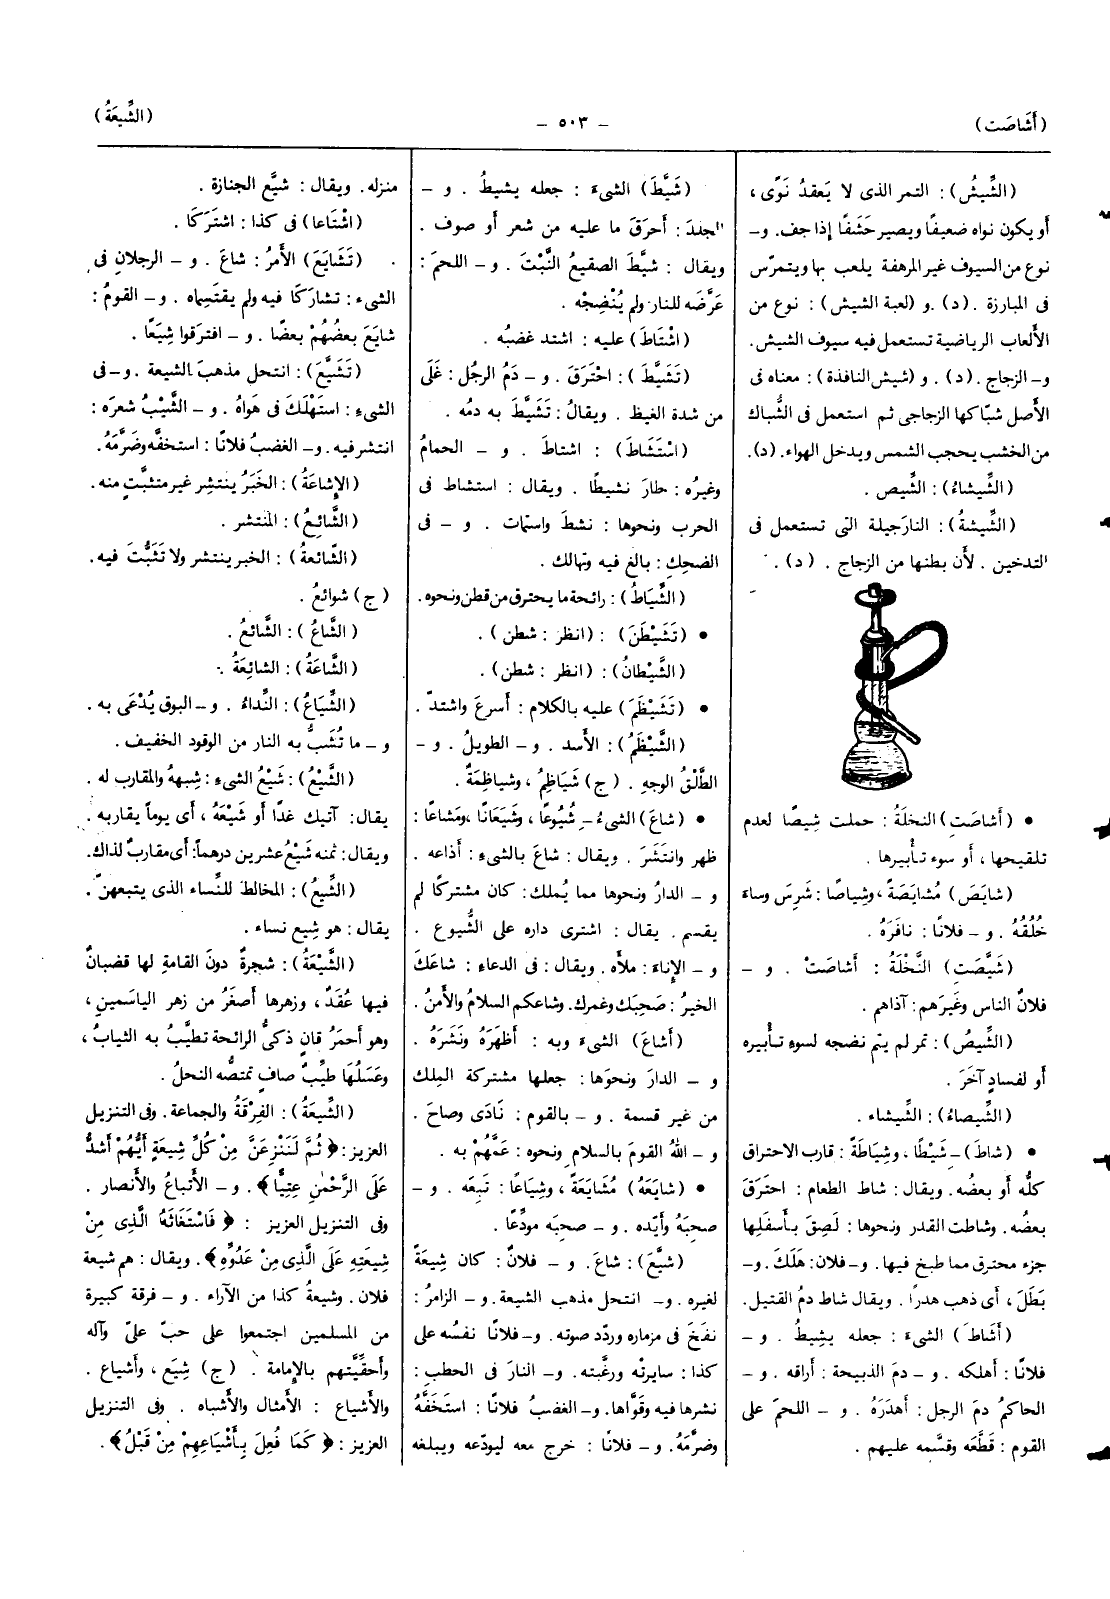 (أَشَاصَت)
– ٥٠٣ –
(الشِّيعَةُ)
(الشِّيشُ) : التمر الذى لا يَعقدُ نَوًى ،
أو يكون نواه ضعيفًا ويصير حَشَفًا إذا جف. و–
نوع من السيوف غير المرهفة يلعب بها ويتمرّس
فى المبارزة . (د) .و (لعبة الشيش) : نوع من
الألعاب الرياضية تستعمل فيه سيوف الشيش.
و– الزجاج . (د) . و (شيش النافذة) : معناه فى
الأصل شبّاكها الزجاجى ثم استعمل فى الشُّباك
من الخشب يحجب الشمس ويدخل الهواء. (د).
(الشِّيشاءُ) : الشِّيص .
(الشِّيشةُ) : النارَجيلة التى تستعمل فى
التدخين . لأن بطنها من الزجاج . (د) .
● (أشاصَتِ) النخلَةُ : حملت شِيصًا لعدم
تلقيحها ، أو سوء تأْبيرها .
(شايَصَ) مُشايَصَةً ، وشِياصًا : شَرِسَ وساءَ
خُلُقُهُ . و – فلانًا : نافَرَهُ .
(شَيَّصَتِ) النَّخْلَةُ : أَشاصَتْ . و –
فلانٌ الناس وغَيرَهم : آذاهم .
(الشِّيصُ) : تمر لم يتم نضجه لسوءِ تأْبيره
أو لفسادٍ آخَرَ .
(الشِّيصاءُ) : الشِّيشاء .
● (شاطَ) –ِ شَيْطًا ، وشِيَاطَةً : قارب الاحتراق
كلُّه أو بعضُه. ويقال : شاط الطعام : احتَرَقَ
بعضُه. وشاطت القدر ونحوها : لَصِقَ بأَسفَلِها
جزء محترق مما طبخ فيها. و– فلان : هَلَكَ. و–
بَطَلَ ، أى ذهب هدراً . ويقال شاط دمُ القتيل.
(أشَاطَ) الشىءَ : جعله يشيطُ . و –
فلانًا : أهلكه . و – دمَ الذبيحة : أراقه . و –
الحاكمُ دمَ الرجل : أَهدَرَهُ . و – اللحمَ على
القوم : قَطَّعَه وقسَّمه عليهم .
(شَيَّطَ) الشىءَ : جعله يشيطُ . و –
الجلدَ : أحرَقَ ما عليه من شعر أو صوف .
ويقال : شيَّطَ الصقيعُ النَّبْتَ . و – اللحمَ :
عَرَّضَه للنار ولم يُنْضِجْه .
(اشْتَاطَ) عليه : اشتد غضبُه .
(تَشَيَّطَ) : احْتَرَقَ . و – دَمُ الرجُل : غَلَى
من شدة الغيظ . ويقالُ : تَشَيَّطَ به دمُه .
(اسْتَشَاطَ) : اشتاطَ . و – الحمامُ
وغيرُه : طارَ نشيطًا . ويقال : استشاط فى
الحرب ونحوها : نشطَ واستماتَ . و – فى
الضحِكِ : بالغ فيه وتهالك .
(الشِّيَاطُ) : رائحة ما يحترق من قطن ونحوه.
● (تَشَيْطَنَ) : (انظر : شطن) .
(الشَّيْطانُ) : (انظر : شطن) .
● (تَشَيْظَمَ) عليه بالكلام : أسرعَ واشتدّ .
(الشَّيْظَمُ) : الأَسد . و – الطويلُ . و –
الطَّلْقُ الوجهِ . (ج) شَيَاظِمُ ، وشياظِمَةٌ .
● (شاعَ) الشىءُ –ِ شُيُوعًا ، وشَيَعَانًا ،ومَشاعًا :
ظهر وانتَشَرَ . ويقال : شاعَ بالشىءِ : أذاعه .
و – الدارُ ونحوها مما يُملك : كان مشتركًا لم
يقسم . يقال : اشترى داره على الشُّيوع .
و – الإناءَ : ملأه. ويقال : فى الدعاء : شاعَكَ
الخيرُ : صَحِبَك وغمرك. وشاعكم السلامُ والأَمنُ .
(أشاعَ) الشىءَ وبه : أَظهَرَهُ ونَشَرَهُ .
و – الدارَ ونحوَها : جعلها مشتركة المِلك
من غير قسمة . و – بالقوم : نَادَى وصاحَ .
و – اللهُ القومَ بالسلام ونحوه : عَمَّهُمْ به .
● (شايَعَهُ) مُشايَعَةً ، وشِيَاعًا : تَبِعَه . و –
صحِبَهُ وأيّده . و – صحبَه مودِّعًا .
(شيَّعَ) : شاعَ. و – فلانٌ : كان شِيعَةً
لغيره . و– انتحل مذهب الشيعة. و – الزامرُ :
نفَخَ فى مزماره وردّد صوته. و–فلانًا نفسُه على
كذا : سايرتْه ورغَّبته. و– النارَ فى الحطبِ :
نشرها فيه وقوَّاها. و– الغضبُ فلانًا : استَخَفَّهُ
وضرَّمهُ. و – فلانًا : خرج معه ليودّعه ويبلغه
منزله. ويقال : شيَّع الجنازة .
(اشْتَاعا) فى كذا : اشتَرَكَا .
(تَشَايَعَ) الأمرُ : شاعَ . و – الرجلانِ فى
الشىءِ : تشارَكَا فيه ولم يقتَسِماه . و – القومُ :
شايَعَ بعضُهُمْ بعضًا . و – افترقوا شِيَعًا .
(تَشَيَّعَ) : انتحل مذهبَ الشيعة . و–فى
الشىءِ : استَهْلَكَ فى هَواهُ . و – الشَّيْبُ شعرَه :
انتشر فيه. و– الغضبُ فلانًا : استخفَّه وضَرَّمَهُ.
(الإشاعَةُ) : الخَبَرُ ينتشِر غير متثبَّتٍ منه.
(الشَّائِعُ) : المنتشر .
(الشّائعةُ) : الخبر ينتشر ولا تَثَبُّتَ فيه.
(ج) شوائعُ .
(الشَّاعُ) : الشَّائعُ .
(الشَّاعَةُ) : الشائِعَةُ .
(الشِّيَاعُ) : النِّداءُ . و– البوق يُدْعَى به .
و – ما تُشَبُّ به النار من الوقود الخفيف .
(الشَّيْعُ) : شَيْعُ الشىءِ : شِبههُ والمقارب له .
يقال : آتيك غدًا أو شَيْعَهُ ، أى يوماً يقاربه .
ويقال : ثمنه شَيْعُ عشرين درهماً : أى مقاربٌ لذاك.
(الشِّيعُ) : المخالطُ للنِّساء الذى يتبعهنّ .
يقال : هو شِيع نساء .
(الشَّيْعَةُ) : شجرةٌ دونَ القامةِ لها قضبانٌ
فيها عُقَدٌ ، وزهرها أصغَرُ من زهر الياسَمينِ ،
وهو أحمرُ قانٍ ذكىُّ الرائحة تطيَّبُ به الثيابُ ،
وعَسَلُهَا طيِّبٌ صافٍ تمتصُّه النحلُ .
(الشِّيعَةُ) : الفِرْقَةُ والجماعة. وفى التنزيل
العزيز : ﴿ ثُمَّ لَنَنْزِعَنَّ مِنْ كُلِّ شِيعَةٍ أَيُّهُمْ أَشَدُّ
عَلَى الرَّحْمٰنِ عِتِيًّا﴾ . و – الأَتباعُ والأَنصار .
وفى التنزيل العزيز : ﴿ فَاسْتَغَاثَهُ الَّذِى مِنْ
شِيعَتِهِ عَلَى الَّذِى مِنْ عَدُوِّهِ﴾. ويقال : هم شيعة
فلان. وشيعةُ كذا من الآراء . و – فرقة كبيرة
من المسلمين اجتمعوا على حبّ علىّ وآله
وأحقِّيَّتهم بالإمامة . (ج) شِيَع ، وأشياع .
والأشياع : الأمثال والأَشباه . وفى التنزيل
العزيز : ﴿ كَمَا فُعِلَ بِأَشْيَاعِهِمْ مِنْ قَبْلُ﴾ .